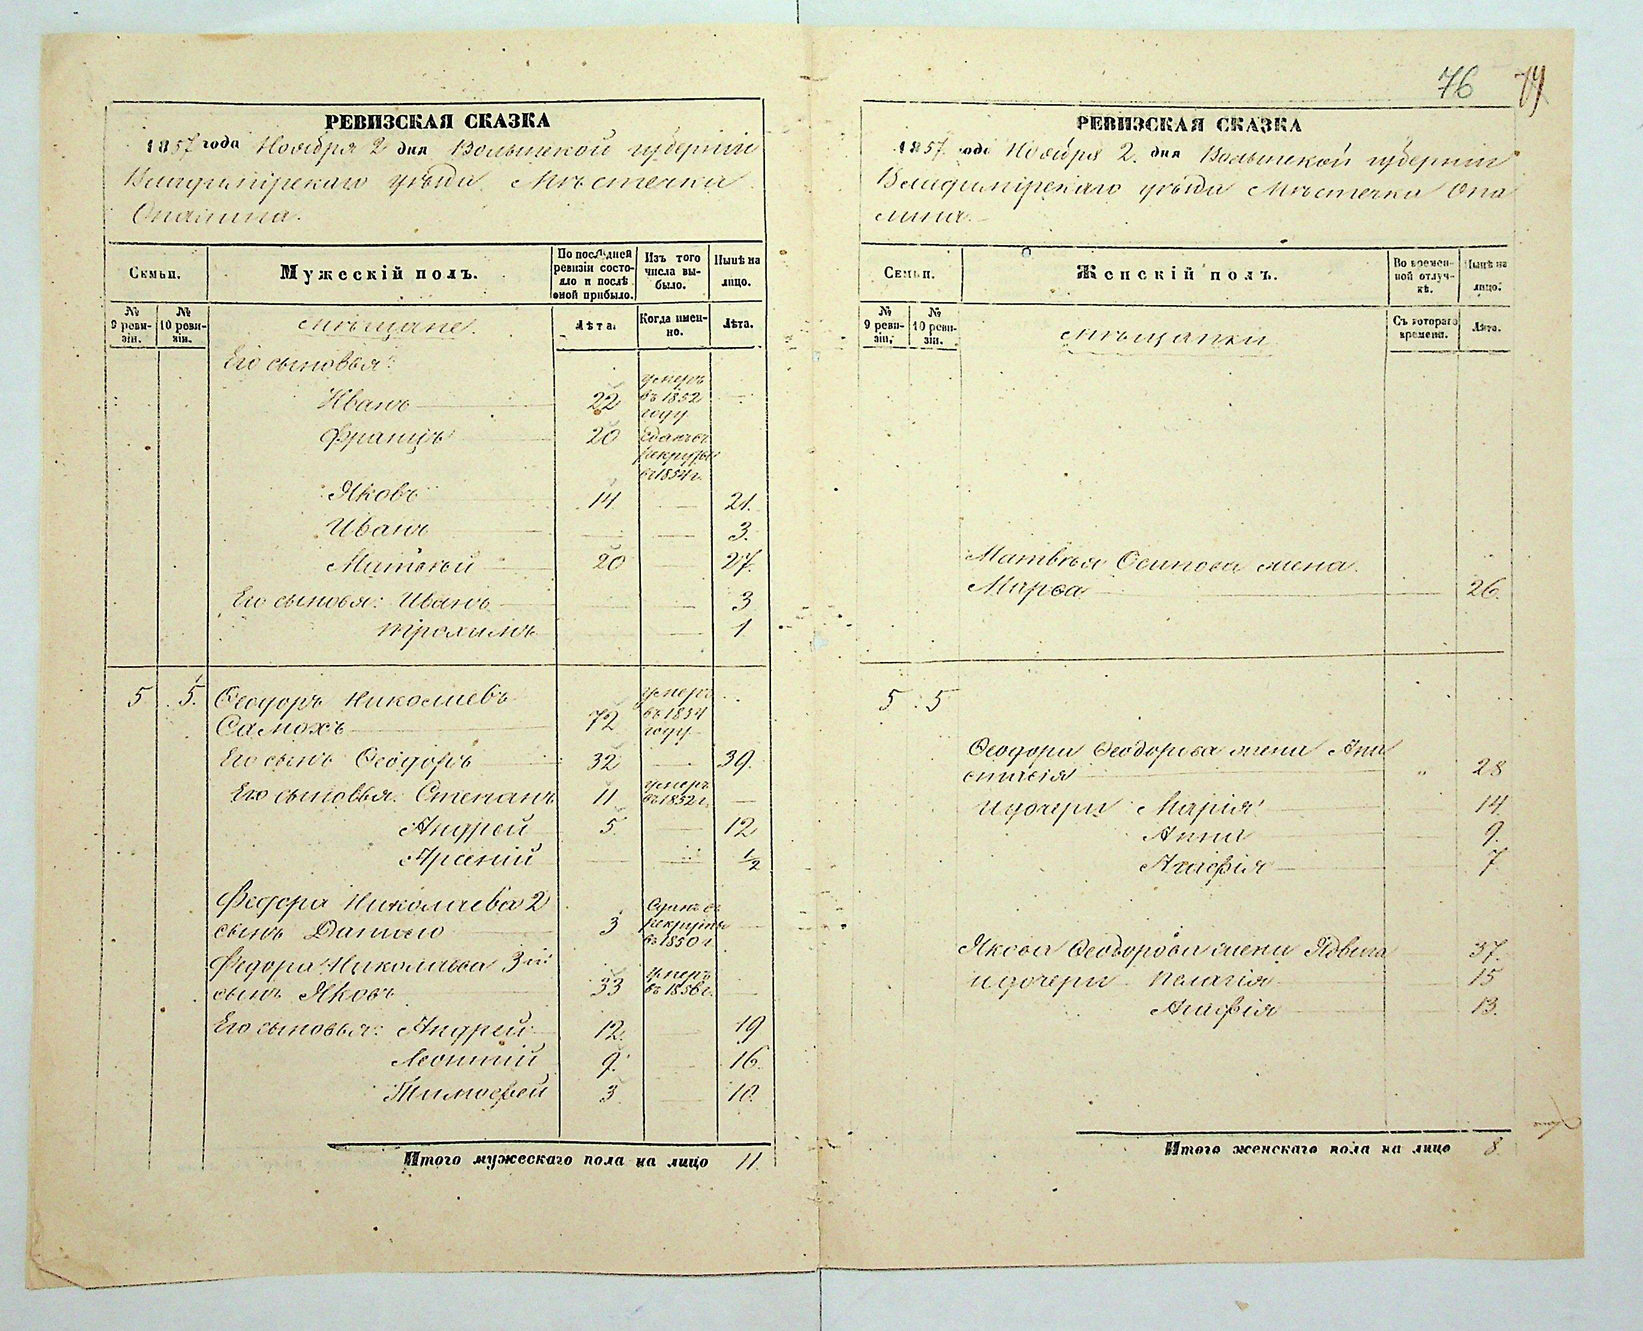 76 79
РЕВИЗСКАЯ СКАЗКА
1857 года Ноября 2 дня Волынской губерніи
Владимірскаго уѣзда Мѣстечка
Опалина.
Семьи.
Мужескій полъ.
По послѣдней ревизіи состояло и послѣ оной прибыло.
Изъ того числа выбыло.
Нынѣ на лицо.
№ 9 ревизіи.
№ 10 ревизіи.
мѣщане.
Лѣта.
Когда именно.
Лѣта.
Его сыновья:
Иванъ 22 умеръ въ 1852 году
Францъ 20 Сданъ въ рекруты въ 1854 г.
Яковъ 14 21.
Иванъ 3.
Матвѣй 20 27.
Его сыновья: Иванъ 3
Трохимъ 1
5 5. Ѳеодоръ Николаевъ
Самохъ 72 умеръ въ 1854 году
Его сынъ Ѳеодоръ 32 39.
Его сыновья: Степанъ 11 умеръ въ 1852 г.
Андрей 5. 12
Арсеній 1/2
Федора Николаева 2
сынъ Данило 3 Сданъ въ рекруты въ 1850 г.
Федора Николаева 3й
сынъ Яковъ 33 умеръ въ 1856 г.
Его сыновья: Андрей 12. 19
Леонтій 9. 16.
Тимоѳей 3. 10.
Итого мужескаго пола на лицо 11.
РЕВИЗСКАЯ СКАЗКА
1857 года Ноября 2. дня Волынской губерніи
Владимірскаго уѣзда Мѣстечка Опа
лина.
Семьи.
Женскій полъ.
Во временной отлучкѣ.
Нынѣ на лицо.
№ 9 ревизіи.
№ 10 ревизіи.
мѣщанки
Съ котораго времени.
Лѣта.
Матвѣя Осипова жена
Марѳа 26.
5 5
Ѳеодора Ѳеодорова жена Ана
стасія " 28
и дочери Марія 14.
Анна 9.
Агафія 7
Якова Ѳеодорова жена Ядвига 37.
и дочери Пелагія 15
Агафія 13.
Итого женскаго пола на лицо 8.